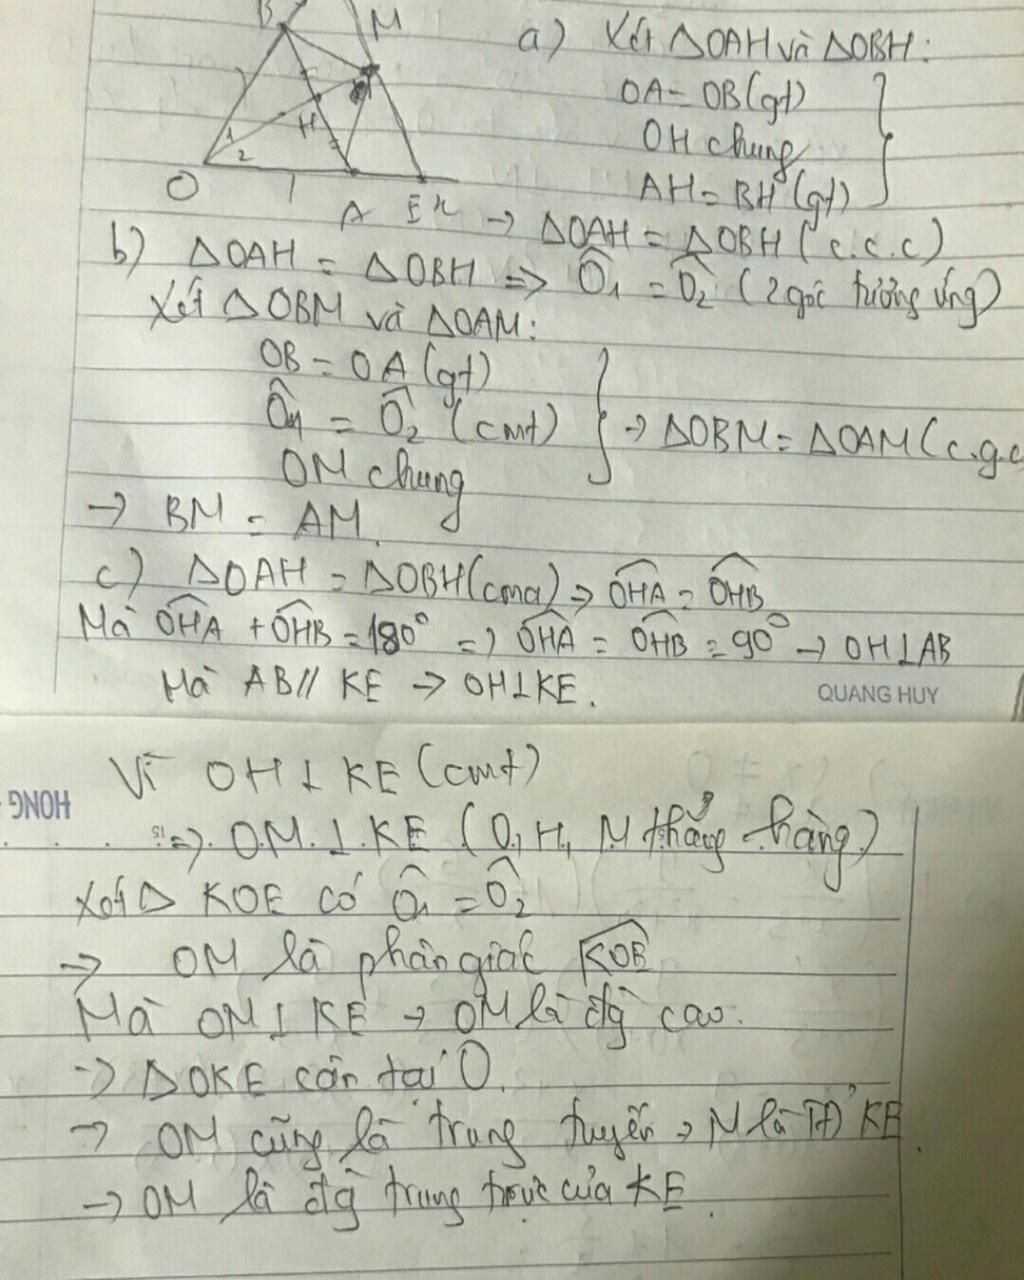 B
M
H
1
2
O
A
E
x
a) Xét ΔOAH và ΔOBH:
OA = OB (gt)
OH chung
AH = BH (gt)
→ ΔOAH = ΔOBH (c.c.c)
b) ΔOAH = ΔOBH => Ô₁ = Ô₂ (2 góc tương ứng)
Xét ΔOBM và ΔOAM:
OB = OA (gt)
Ô₁ = Ô₂ (cmt)
OM chung
→ ΔOBM = ΔOAM (c.g.c
→ BM = AM.
c) ΔOAH = ΔOBH (cma) => OHA = OHB
Mà OHA + OHB = 180° => OHA = OHB = 90° → OH⊥AB
Mà AB // KE → OH⊥KE.
QUANG HUY
Vì OH ⊥ KE (cmt)
HONG
=> OM ⊥ KE (O, H, M thẳng hàng)
Xét Δ KOE có Ô₁ = Ô₂
→ OM là phân giác KOE
Mà OM⊥KE → OM là đg cao.
→ ΔOKE cân tại O.
→ OM cũng là trung tuyến → M là TĐ KE.
→ OM là đg trung trực của KE.